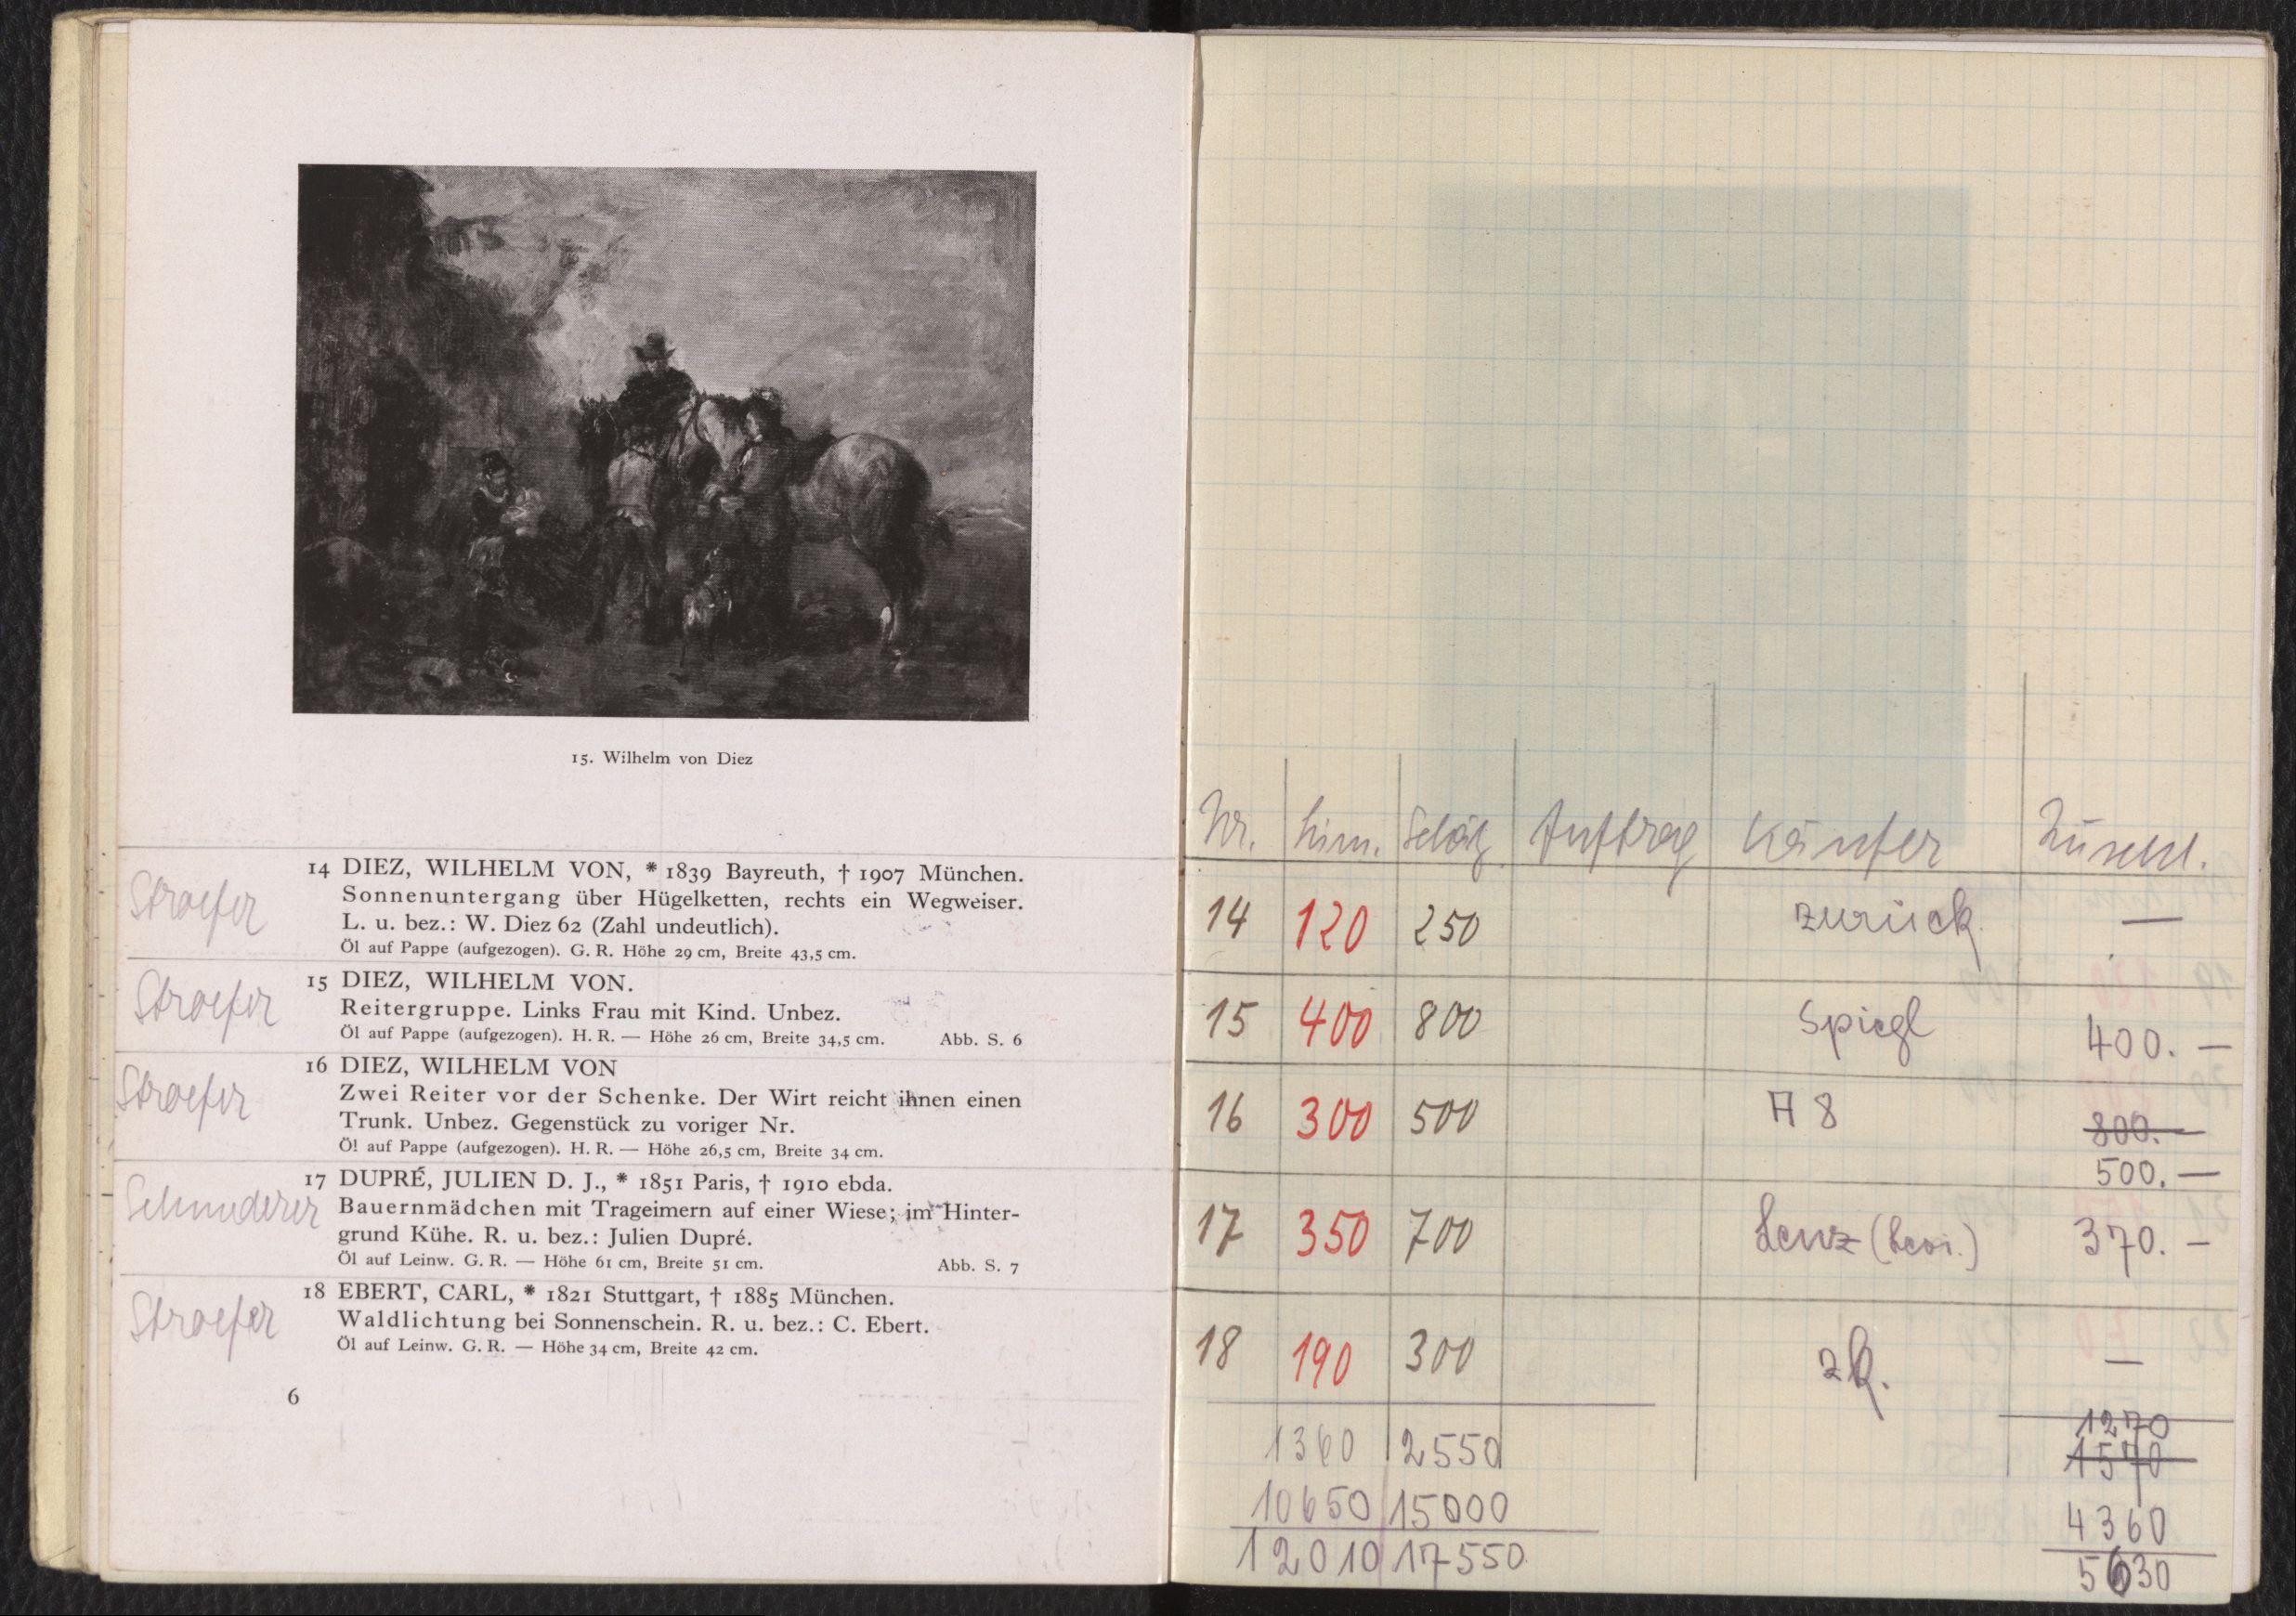 15. Wilhelm von Diez
Stroefer
14 DIEZ, WILHELM VON, * 1839 Bayreuth, † 1907 München.
Sonnenuntergang über Hügelketten, rechts ein Wegweiser.
L. u. bez.: W. Diez 62 (Zahl undeutlich).
Öl auf Pappe (aufgezogen). G. R. Höhe 29 cm, Breite 43,5 cm.
Stroefer
15 DIEZ, WILHELM VON.
Reitergruppe. Links Frau mit Kind. Unbez.
Öl auf Pappe (aufgezogen). H. R. — Höhe 26 cm, Breite 34,5 cm. Abb. S. 6
Stroefer
16 DIEZ, WILHELM VON
Zwei Reiter vor der Schenke. Der Wirt reicht ihnen einen
Trunk. Unbez. Gegenstück zu voriger Nr.
Öl auf Pappe (aufgezogen). H. R. — Höhe 26,5 cm, Breite 34 cm.
Schmederer
17 DUPRÉ, JULIEN D. J., * 1851 Paris, † 1910 ebda.
Bauernmädchen mit Trageimern auf einer Wiese; im Hinter-
grund Kühe. R. u. bez.: Julien Dupré.
Öl auf Leinw. G. R. — Höhe 61 cm, Breite 51 cm. Abb. S. 7
Stroefer
18 EBERT, CARL, * 1821 Stuttgart, † 1885 München.
Waldlichtung bei Sonnenschein. R. u. bez.: C. Ebert.
Öl auf Leinw. G. R. — Höhe 34 cm, Breite 42 cm.
6
Nr. Lim. Schätz. Auftrag Käufer Zuschl.
14 120 250 zurück —
15 400 800 Spiegl 400. —
16 300 500 A 8 800. —
500. —
17 350 700 Lenz 370. —
18 190 300 zR. —
1270
1360 2550 1570
10650 15000 4360
12010 17550 5630